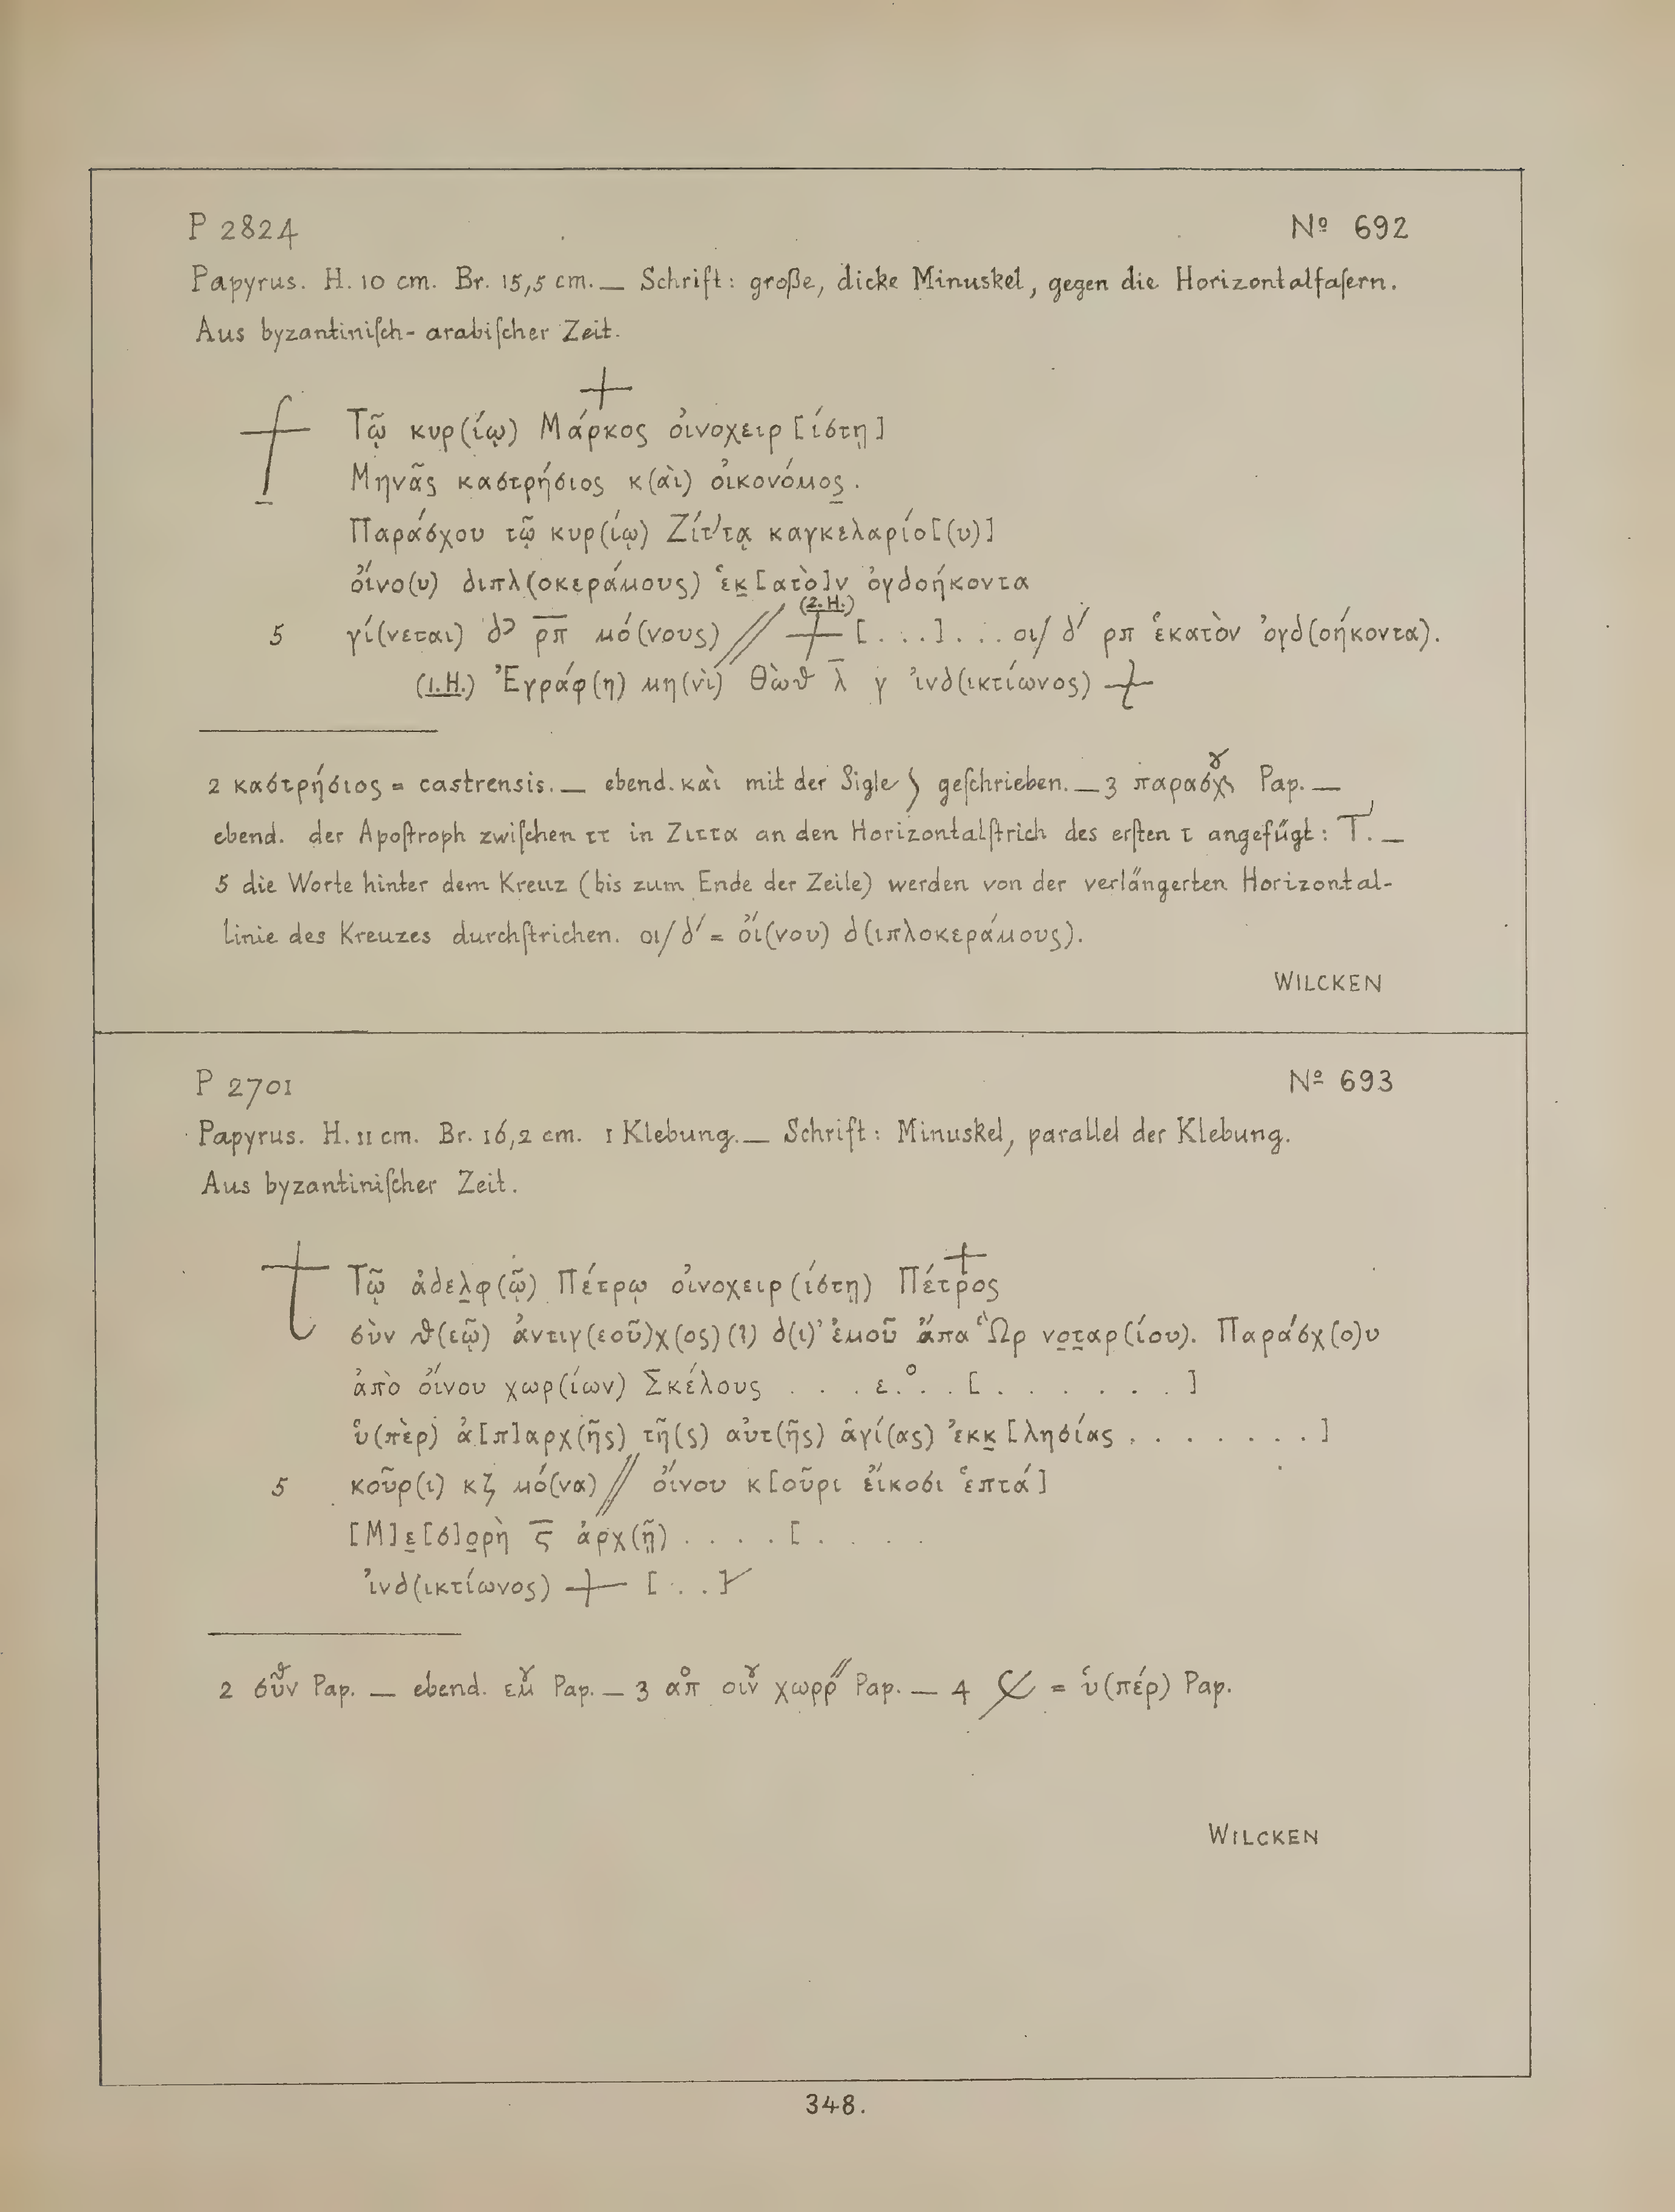 P 2824 Nº 692
Papyrus. H. 10 cm. Br. 15,5 cm. — Schrift: große, dicke Minuskel, gegen die Horizontalfaſern.
Aus byzantiniſch-arabiſcher Zeit.
+
Τῷ κυρ(ίῳ) Μάρκος οἰνοχειρ[ίστῃ]
Μηνᾶς καστρήσιος κ(αὶ) οἰκονόμος̣.
Παράσχου τῷ κυρ(ίῳ) Ζίτ'τᾳ καγκελαρίο[(υ)]
οἴνο(υ) διπλ(οκεράμους) ἑκ̣[ατὸ]ν ὀγδοήκοντα
(2. H.)
5 γί(νεται) δ ρ̅π̅ μό(νους) // + [...]... οι/ δ' ρπ ἑκατὸν ὀγδ(οήκοντα).
(1. H.) Ἐγράφ(η) μη(νὶ) Θὼθ λ̅ γ ἰνδ(ικτίωνος) +
2 καστρήσιος = castrensis. — ebend. καὶ mit der Sigle geſchrieben. — 3 παρασχ Pap. —
ebend. der Apoſtroph zwiſchen ττ in Ζιττα an den Horizontalſtrich des erſten τ angefügt: Τ'. —
5 die Worte hinter dem Kreuz (bis zum Ende der Zeile) werden von der verlängerten Horizontal-
linie des Kreuzes durchſtrichen. οι/ δ' = οἴ(νου) δ(ιπλοκεράμους).
WILCKEN
P 2701 Nº 693
Papyrus. H. 11 cm. Br. 16,2 cm. 1 Klebung. — Schrift: Minuskel, parallel der Klebung.
Aus byzantiniſcher Zeit.
+
Τῷ ἀδελ̣φ(ῷ) Πέτρῳ οἰνοχειρ(ίστῃ) Πέτρος
σὺν θ(εῷ) ἀντιγ(εοῦ)χ(ος) (?) δ(ι)' ἐμοῦ ἄπα Ὢρ νο̣τ̣αρ(ίου). Παράσχ(ο)υ
ἀπὸ οἴνου χωρ(ίων) Σκέλους . . . ε.ο. . [. . . . . . .]
ὑ(πὲρ) ἀ[π]αρχ(ῆς) τῆ(ς) αὐτ(ῆς) ἁγί(ας) ἐκκ̣[λησίας . . . . . . .]
5 κοῦρ(ι) κζ μό(να) // οἴνου κ[οῦρι εἴκοσι ἑπτά]
[Μ]ε̣[σ]ο̣ρὴ ς̅ ἀρχ(ῇ) . . . . [. . . .
ἰνδ(ικτίωνος) + [. . .]
2 σὺν Pap. — ebend. εμ Pap. — 3 απ οιν χωρρ// Pap. — 4 = ὑ(πέρ) Pap.
WILCKEN
348.